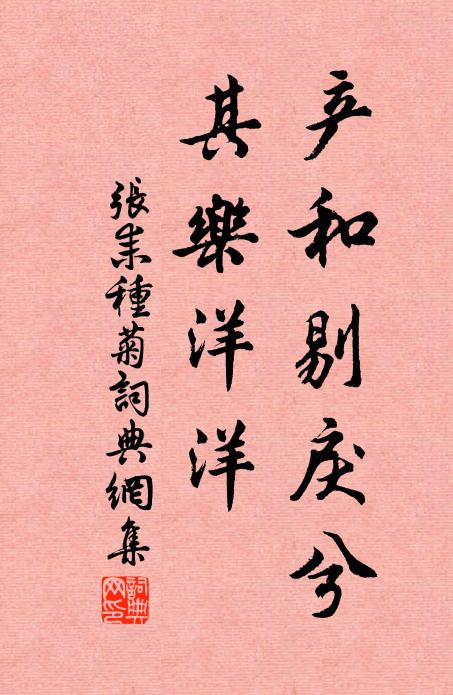 产和剔戾兮
其樂洋洋
張耒種菊詞典網集
詞典网印